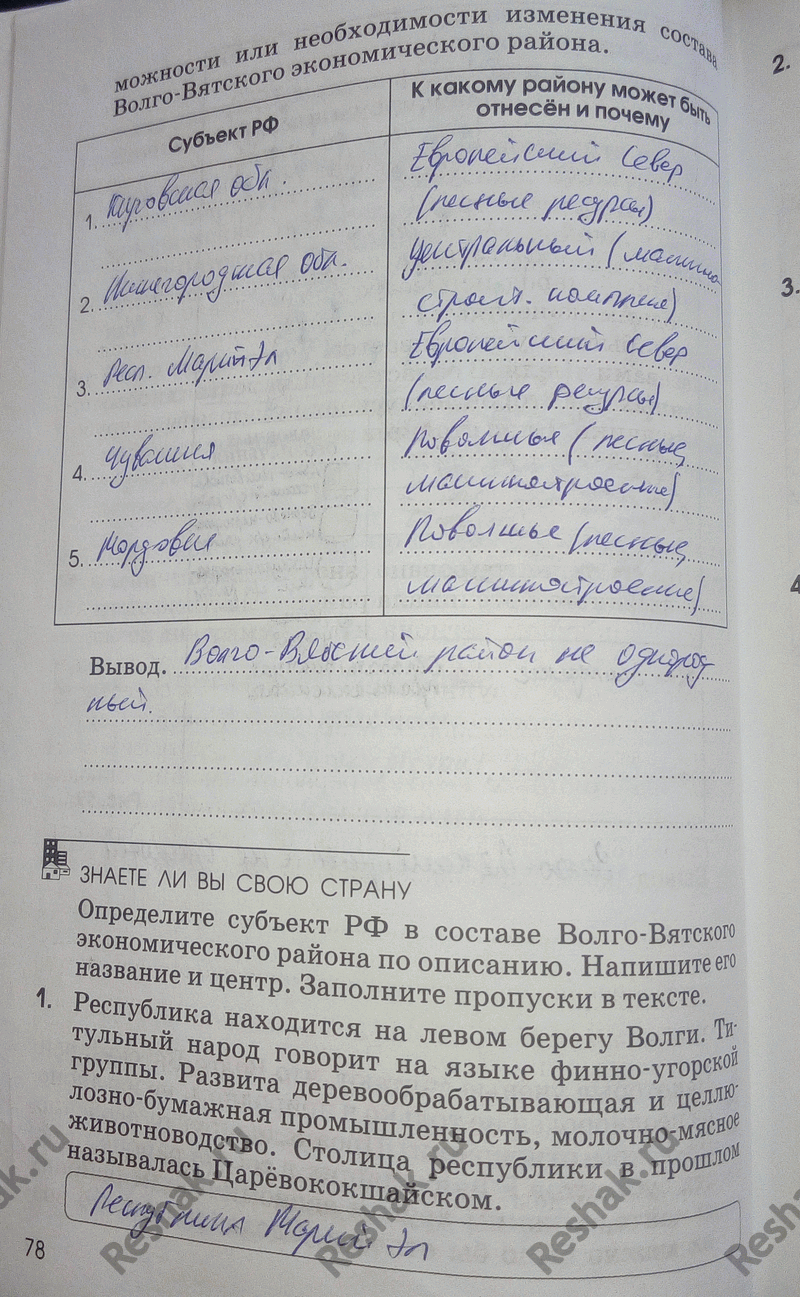 можности или необходимости изменения состава
Волго-Вятского экономического района.
Субъект РФ
К какому району может быть
отнесён и почему
1. Кировская обл.
Европейский Север
(лесные ресурсы)
2. Нижегородская обл.
Центральный (машино
строит. комплекс)
3. Респ. Марий Эл
Европейский Север
(лесные ресурсы)
4. Чувашия
Поволжье (лесные,
машиностроение)
5. Мордовия
Поволжье (лесные,
машиностроение)
Вывод. Волго-Вятский район не однород
ный.
ЗНАЕТЕ ЛИ ВЫ СВОЮ СТРАНУ
Определите субъект РФ в составе Волго-Вятского
экономического района по описанию. Напишите его
название и центр. Заполните пропуски в тексте.
1. Республика находится на левом берегу Волги. Ти-
тульный народ говорит на языке финно-угорской
группы. Развита деревообрабатывающая и целлю-
лозно-бумажная промышленность, молочно-мясное
животноводство. Столица республики в прошлом
называлась Царёвококшайском.
Республика Марий Эл
78
2.
3.
4
Reshak.ru
Reshak.ru
Reshak.ru